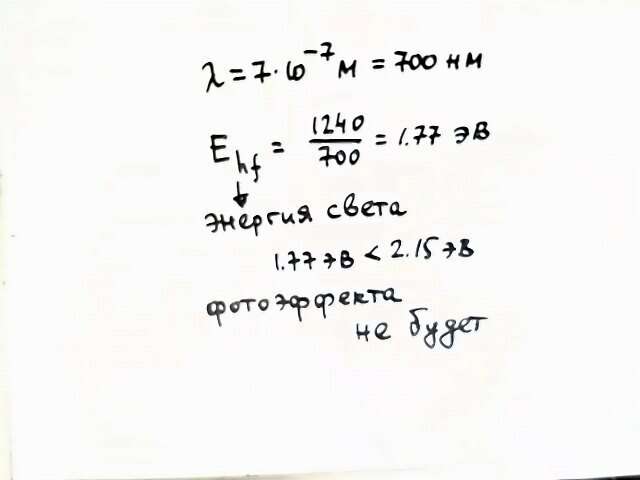 λ = 7·10⁻⁷ м = 700 нм
E_hf = 1240/700 = 1.77 эВ
энергия света
1.77 эВ < 2.15 эВ
фотоэффекта
не будет